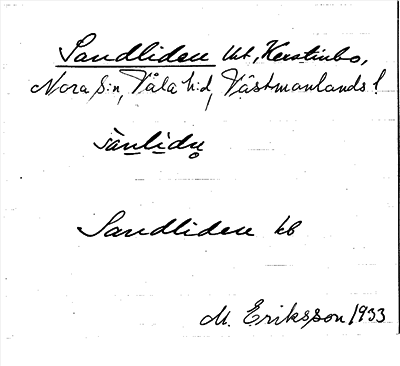 Sandliden utt, Kerstinbo,
Nora s:n, Våla h:d, Västmanlands l
sànlìdn̥
Sandliden kb
M. Eriksson 1933